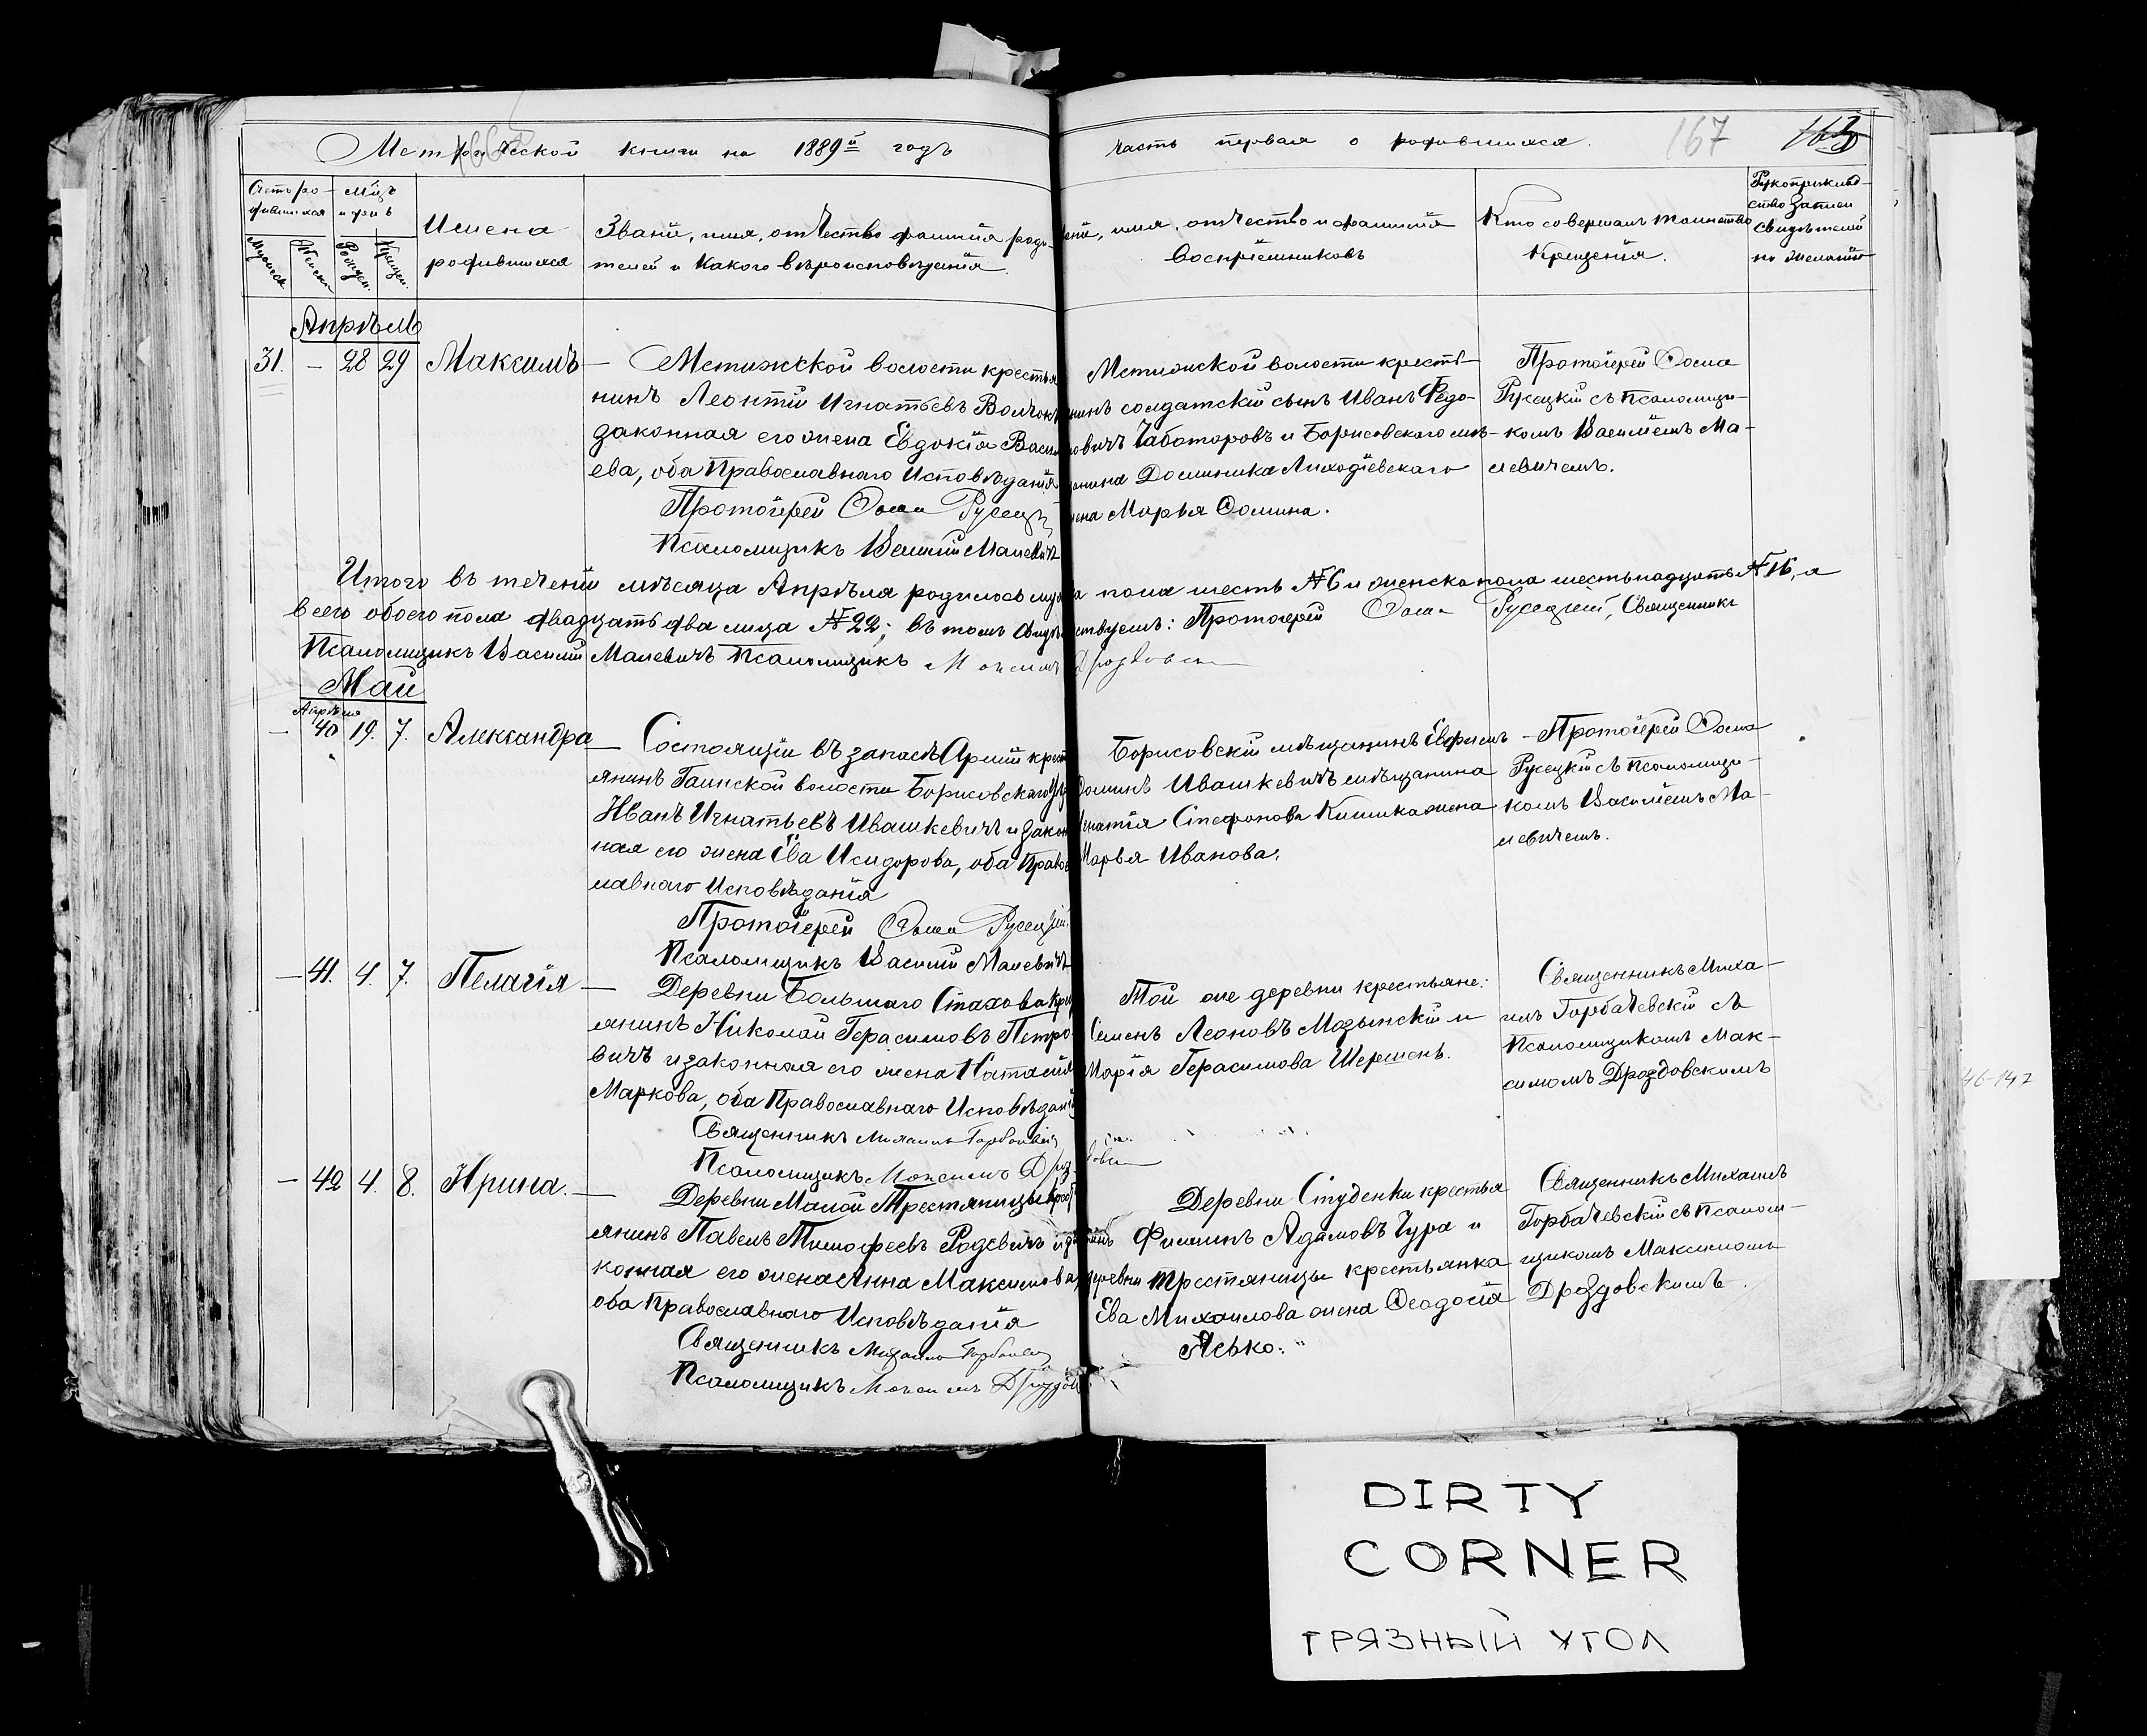 Метрической книги на 1889й годъ часть первая о родившихся. 167
Счетъ ро- Мѣцъ
дившихся и день
Мужеск. Женск. Рожден. Крещен.
Имена
родившихся
Званіе, имя, отчество фамилія роди-
телей и какого вѣроисповѣданія
имя, отчество и фамилія
Воспріемниковъ
Кто совершалъ таинство
Крещенія.
Рукоприклад-
ство записи
свидѣтелей
по желанію
Апрѣль
31. - 28 29 Максимъ
Метижской волости крестья
нинъ Леонтій Игнатьевъ
законная его жена Евдокія Васи
ева, оба Православнаго Исповѣданія
Протоіерей Ѳома Русецкій
Псаломщикъ Василій Малевичъ
Метижской волости кресть-
нинъ солдатскій сынъ Иванъ Ѳедо-
овичъ Чаботоровъ и Борисовскаго мѣ-
щанина Доминика Лиходіевскаго
жена Марья Ѳомина.
Протоіерей Ѳома
Русецкій съ псаломщи-
комъ Василіемъ Ма-
левичемъ.
Итого въ теченіи мѣсяца Апрѣля родилось муж пола шесть №6 и женска пола шестьнадцать №16, а
всего обоего пола двадцать два лица №22; въ томъ свидѣтельствуемъ: Протоіерей Ѳома Русецкій, Священникъ
Псаломщикъ Василій Малевичъ Псаломщикъ Максимъ Дроздовскій
Май
Апрѣля
- 40 19. 7. Александра
Состоящій въ запасѣ Арміи крест
янинъ Гаинской волости Борисовскаго уѣз
Иванъ Игнатьевъ Ивашкевичъ и закон
ная его жена Ева Исидорова, оба Правос
лавнаго Исповѣданія
Протоіерей Ѳома Русецкій
Псаломщикъ Василій Малевичъ
Борисовскій мѣщанинъ Ефимъ
Ѳоминъ Ивашкевичъ мѣщанина
Игнатія Стефанова Кишка жена
Марья Иванова.
Протоіерей Ѳома
Русецкій съ псаломщи-
комъ Василіемъ Ма-
левичемъ.
- 41. 4. 7. Пелагія
Деревни Большаго Стахова кре
янинъ Николай Герасимовъ Петро-
вичъ и законная его жена Наталія
Маркова, оба Православнаго Исповѣдан
Священникъ Михаилъ Горбачевскій
Псаломщикъ Максимъ Дроздовскій
Той же деревни крестьяне:
Семенъ Леоновъ Мозынскій и
Марія Герасимова Шершень.
Священникъ Миха-
илъ Горбачевскій съ
Псаломщикомъ Мак-
симомъ Дроздовскимъ
- 42 4. 8. Ирина.
Деревни Малой Тростяницы крест
янинъ Павелъ Тимофеевъ Радевичъ и за
конная его жена Анна Максимова,
оба Православнаго Исповѣданія
Священникъ Михаилъ Горбачевск
Псаломщикъ Максимъ Дроздов
Деревни Студенки крестья
нинъ Филипъ Адамовъ Чура и
деревни Тростяницы крестьянка
Ева Михаилова жена Ѳеодосія
Ясько.
Священникъ Михаилъ
Горбачевскій съ Псалом-
щикомъ Максимомъ
Дроздовскимъ.
46-147
DIRTY
CORNER
ГРЯЗНЫЙ УГОЛ